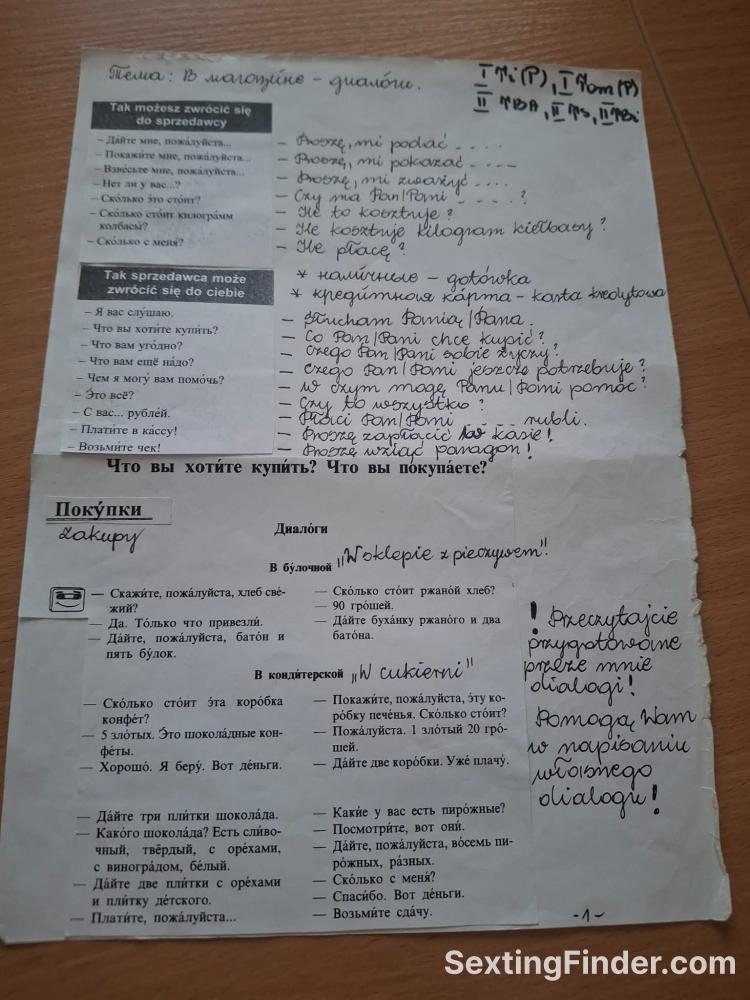 Тема: В магази́не – диало́ги.
I Ti(P), I Tom(P)
II TBA, II TS, II TBi
Tak możesz zwrócić się
do sprzedawcy
– Да́йте мне, пожа́луйста...
– Покажи́те мне, пожа́луйста...
– Взве́сьте мне, пожа́луйста...
– Нет ли у вас...?
– Ско́лько э́то сто́ит?
– Ско́лько сто́ит килогра́мм
колбасы́?
– Ско́лько с меня́?
– Proszę, mi podać . . . .
– Proszę, mi pokazać . . . –
– Proszę, mi zważyć . . . .
– Czy ma Pan/Pani – . . – . ?
– Ile to kosztuje?
– Ile kosztuje kilogram kiełbasy?
– Ile płacę?
* нали́чные – gotówka
* креди́тная ка́рта – karta kredytowa
Tak sprzedawca może
zwrócić się do ciebie
– Я вас слу́шаю.
– Что вы хоти́те купи́ть?
– Что вам уго́дно?
– Что вам ещё на́до?
– Чем я могу́ вам помо́чь?
– Э́то всё?
– С вас... рубле́й.
– Плати́те в ка́ссу!
– Возьми́те чек!
– Słucham Panią/Pana.
– Co Pan/Pani chce kupić?
– Czego Pan/Pani sobie życzy?
– Czego Pan/Pani jeszcze potrzebuje?
– W czym mogę Panu/Pani pomóc?
– Czy to wszystko?
– Płaci Pan/Pani – . – . rubli.
– Proszę zapłacić w kasie!
– Proszę wziąć paragon!
Что вы хоти́те купи́ть? Что вы покупа́ете?
Поку́пки
zakupy
Диало́ги
В бу́лочной „W sklepie z pieczywem”.
— Скажи́те, пожа́луйста, хлеб све́-
жий?
— Да. То́лько что привезли́.
— Да́йте, пожа́луйста, бато́н и
пять бу́лок.
— Ско́лько сто́ит ржано́й хлеб?
— 90 гро́шей.
— Да́йте буха́нку ржано́го и два
бато́на.
В конди́терской „W cukierni”
— Ско́лько сто́ит э́та коро́бка
конфе́т?
— 5 зло́тых. Э́то шокола́дные кон-
фе́ты.
— Хорошо́. Я беру́. Вот де́ньги.
— Покажи́те, пожа́луйста, э́ту ко-
ро́бку пече́нья. Ско́лько сто́ит?
— Пожа́луйста. 1 зло́тый 20 гро́-
шей.
— Да́йте две коро́бки. Уже́ плачу́.
— Да́йте три пли́тки шокола́да.
— Како́го шокола́да? Есть сли́во-
чный, твёрдый, с оре́хами,
с виногра́дом, бе́лый.
— Да́йте две пли́тки с оре́хами
и пли́тку де́тского.
— Плати́те, пожа́луйста...
— Каки́е у вас есть пиро́жные?
— Посмотри́те, вот они́.
— Да́йте, пожа́луйста, во́семь пи-
ро́жных, ра́зных.
— Ско́лько с меня́?
— Спаси́бо. Вот де́ньги.
— Возьми́те сда́чу.
! Przeczytajcie
przygotowane
przeze mnie
dialogi!
Pomogą Wam
w napisaniu
własnego
dialogu!
-1-
SextingFinder.com